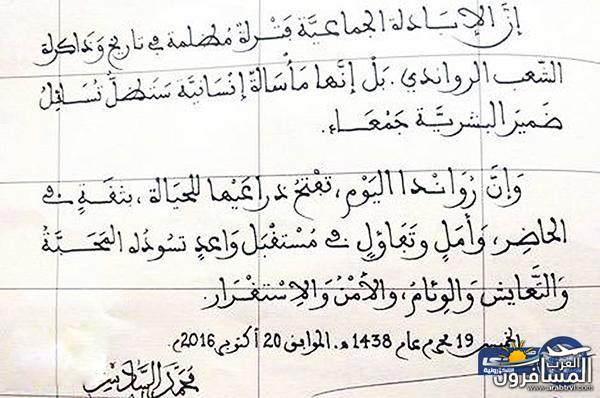 إنَّ الإبَادَة الجماعيَّة فَتْرَة مُظلمة في تاريخ وَذاكرة
الشّعب الرواندي. بَلْ إنَّها مَأسَاة إنْسَانيَّة سَتَظلُّ تُسَائِلُ
ضَميرَ البشَريَّة جَمْعَاء.
وَإنَّ رُوَانْدا اليَوْم، تَفْتَحُ ذراعَيْها للحَيَاة، بثقَةٍ في
الحَاضِر، وَأمَلٍ وتَفَاؤلٍ في مُسْتَقْبَلٍ وَاعدٍ تسُودُه المَحَبَّةُ
وَالتَّعَايش وَالوِئامُ، والأمْنُ وَالاِسْتقْرَار.
الخميس 19 محرم عام 1438 هـ. الموافق 20 أكتوبر 2016م.
محمد السادس
العرب
المسافرون
www.arabtrvl.com